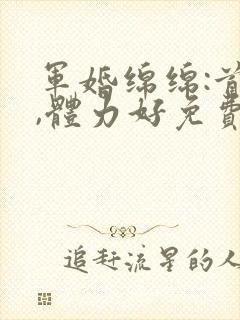 軍婚綿綿:首
,體力好免費
追赶流星的人